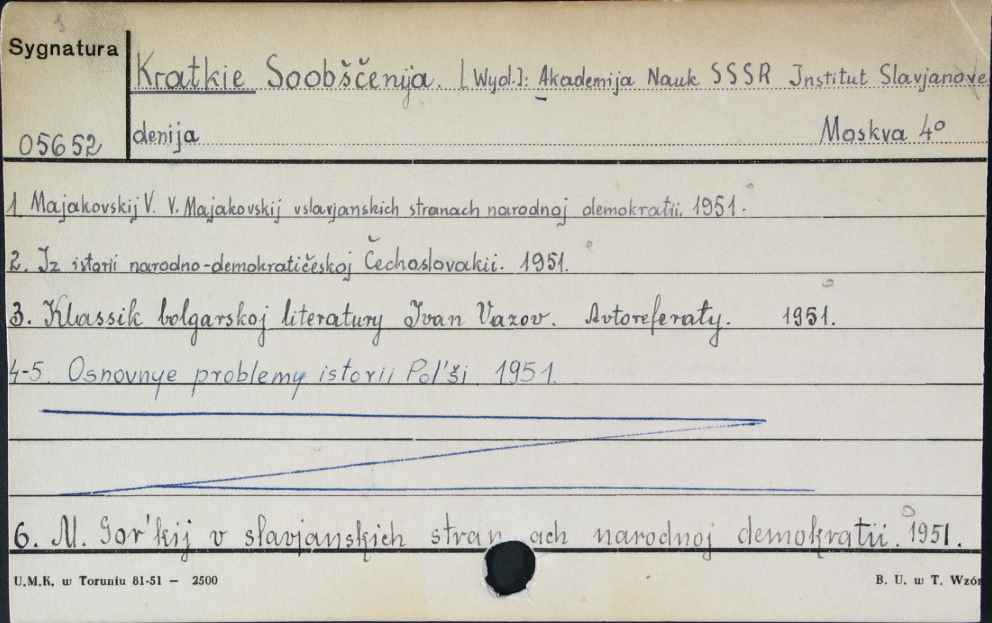 Sygnatura
Kratkie Soobščenija. [Wyd.]: Akademija Nauk SSSR Institut Slavjanove
05652 denija Moskva 4º
1. Majakovskij V. V. Majakovskij vslavjanskich stranach narodnoj demokratii. 1951.
2. Iz istorii narodno-demokratičeskoj Čechoslovakii. 1951.
3. Klassik bolgarskoj literatury Ivan Vazov. Avtoreferaty. 1951.
4-5. Osnovnye problemy istorii Pol'ši. 1951.
6. M. Gor'kij v slavjanskich stranach narodnoj demokratii. 1951.
U.M.K. w Toruniu 81-51 — 2500 B. U. w T. Wzór